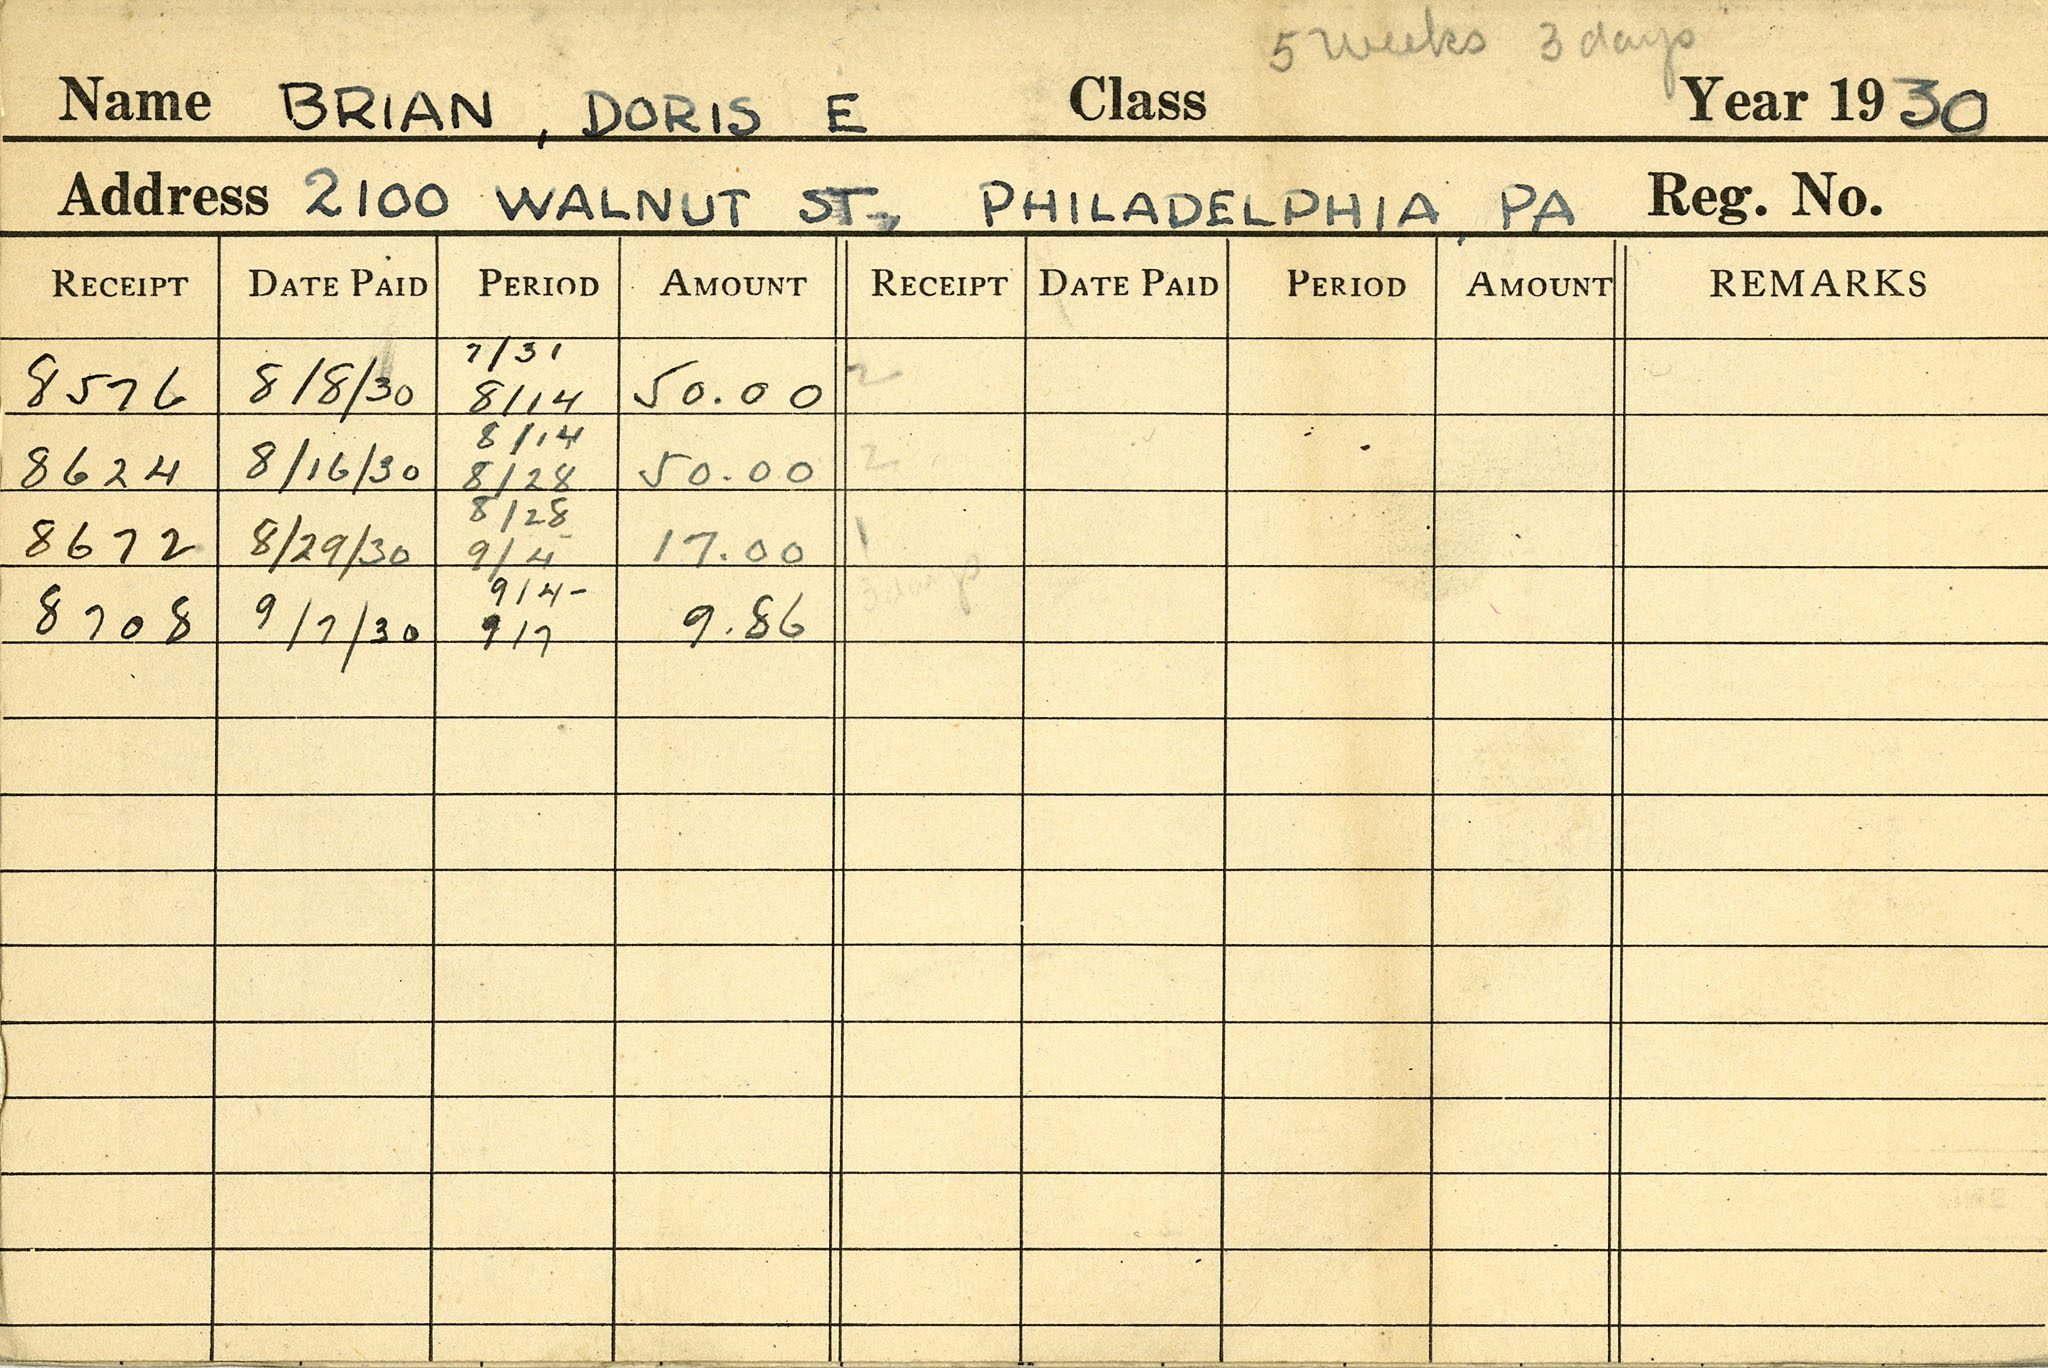 5 weeks 3 days
Name BRIAN, DORIS E Class Year 1930
Address 2100 WALNUT ST., PHILADELPHIA, PA Reg. No.
RECEIPT DATE PAID PERIOD AMOUNT RECEIPT DATE PAID PERIOD AMOUNT REMARKS
7/31
8576 8/8/30 8/14 50.00 2
8/14
8624 8/16/30 8/28 50.00 2
8/28
8672 8/29/30 9/4 17.00 1
9/4-
8708 9/7/30 9/7 9.86 3 days